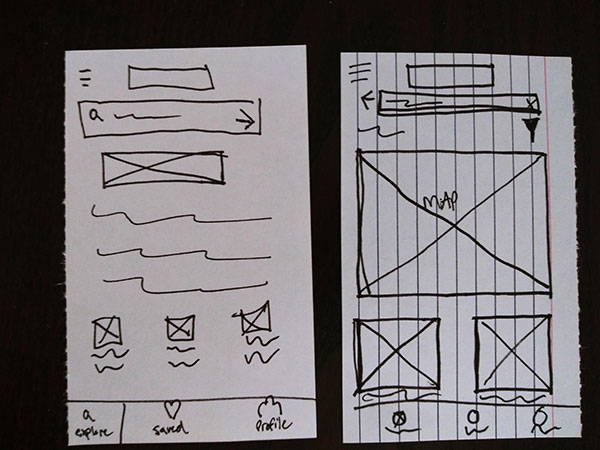 explore
saved
profile
MAP